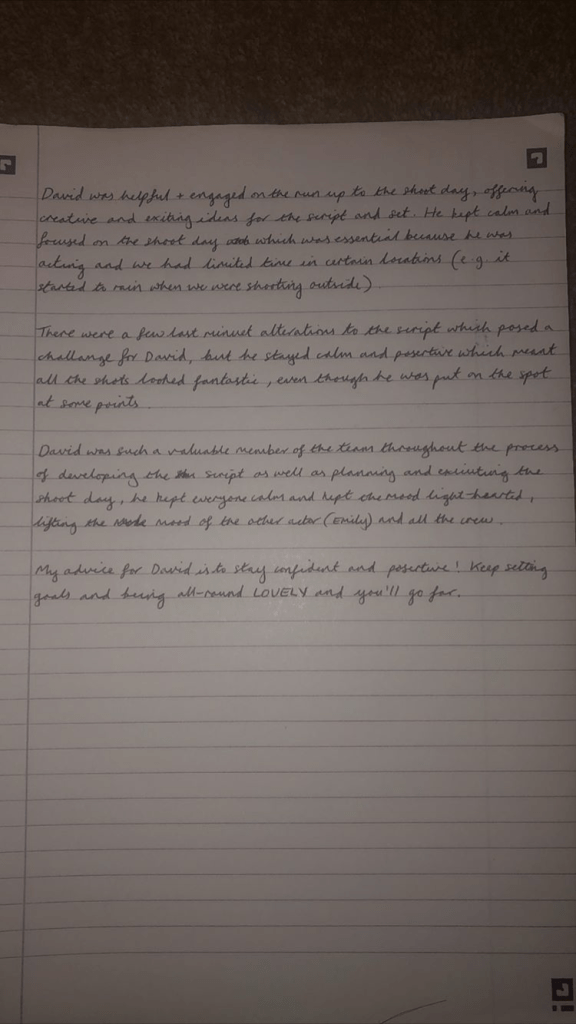 David was helpful + engaged on the run up to the shoot day, offering
creative and exiting ideas for the script and set. He kept calm and
focused on the shoot day which was essential because he was
acting and we had limited time in certain locations (e.g. it
started to rain when we were shooting outside).
There were a few last minuet alterations to the script which posed a
challange for David, but he stayed calm and posertive which meant
all the shots looked fantastic, even though he was put on the spot
at some points.
David was such a valuable member of the team throughout the process
of developing the script as well as planning and exicuting the
shoot day, he kept everyone calm and kept the mood light-hearted,
lifting the mood of the other actor (Emily) and all the crew.
My advice for David is to stay confident and posertive! Keep setting
goals and being all-round LOVELY and you'll go far.